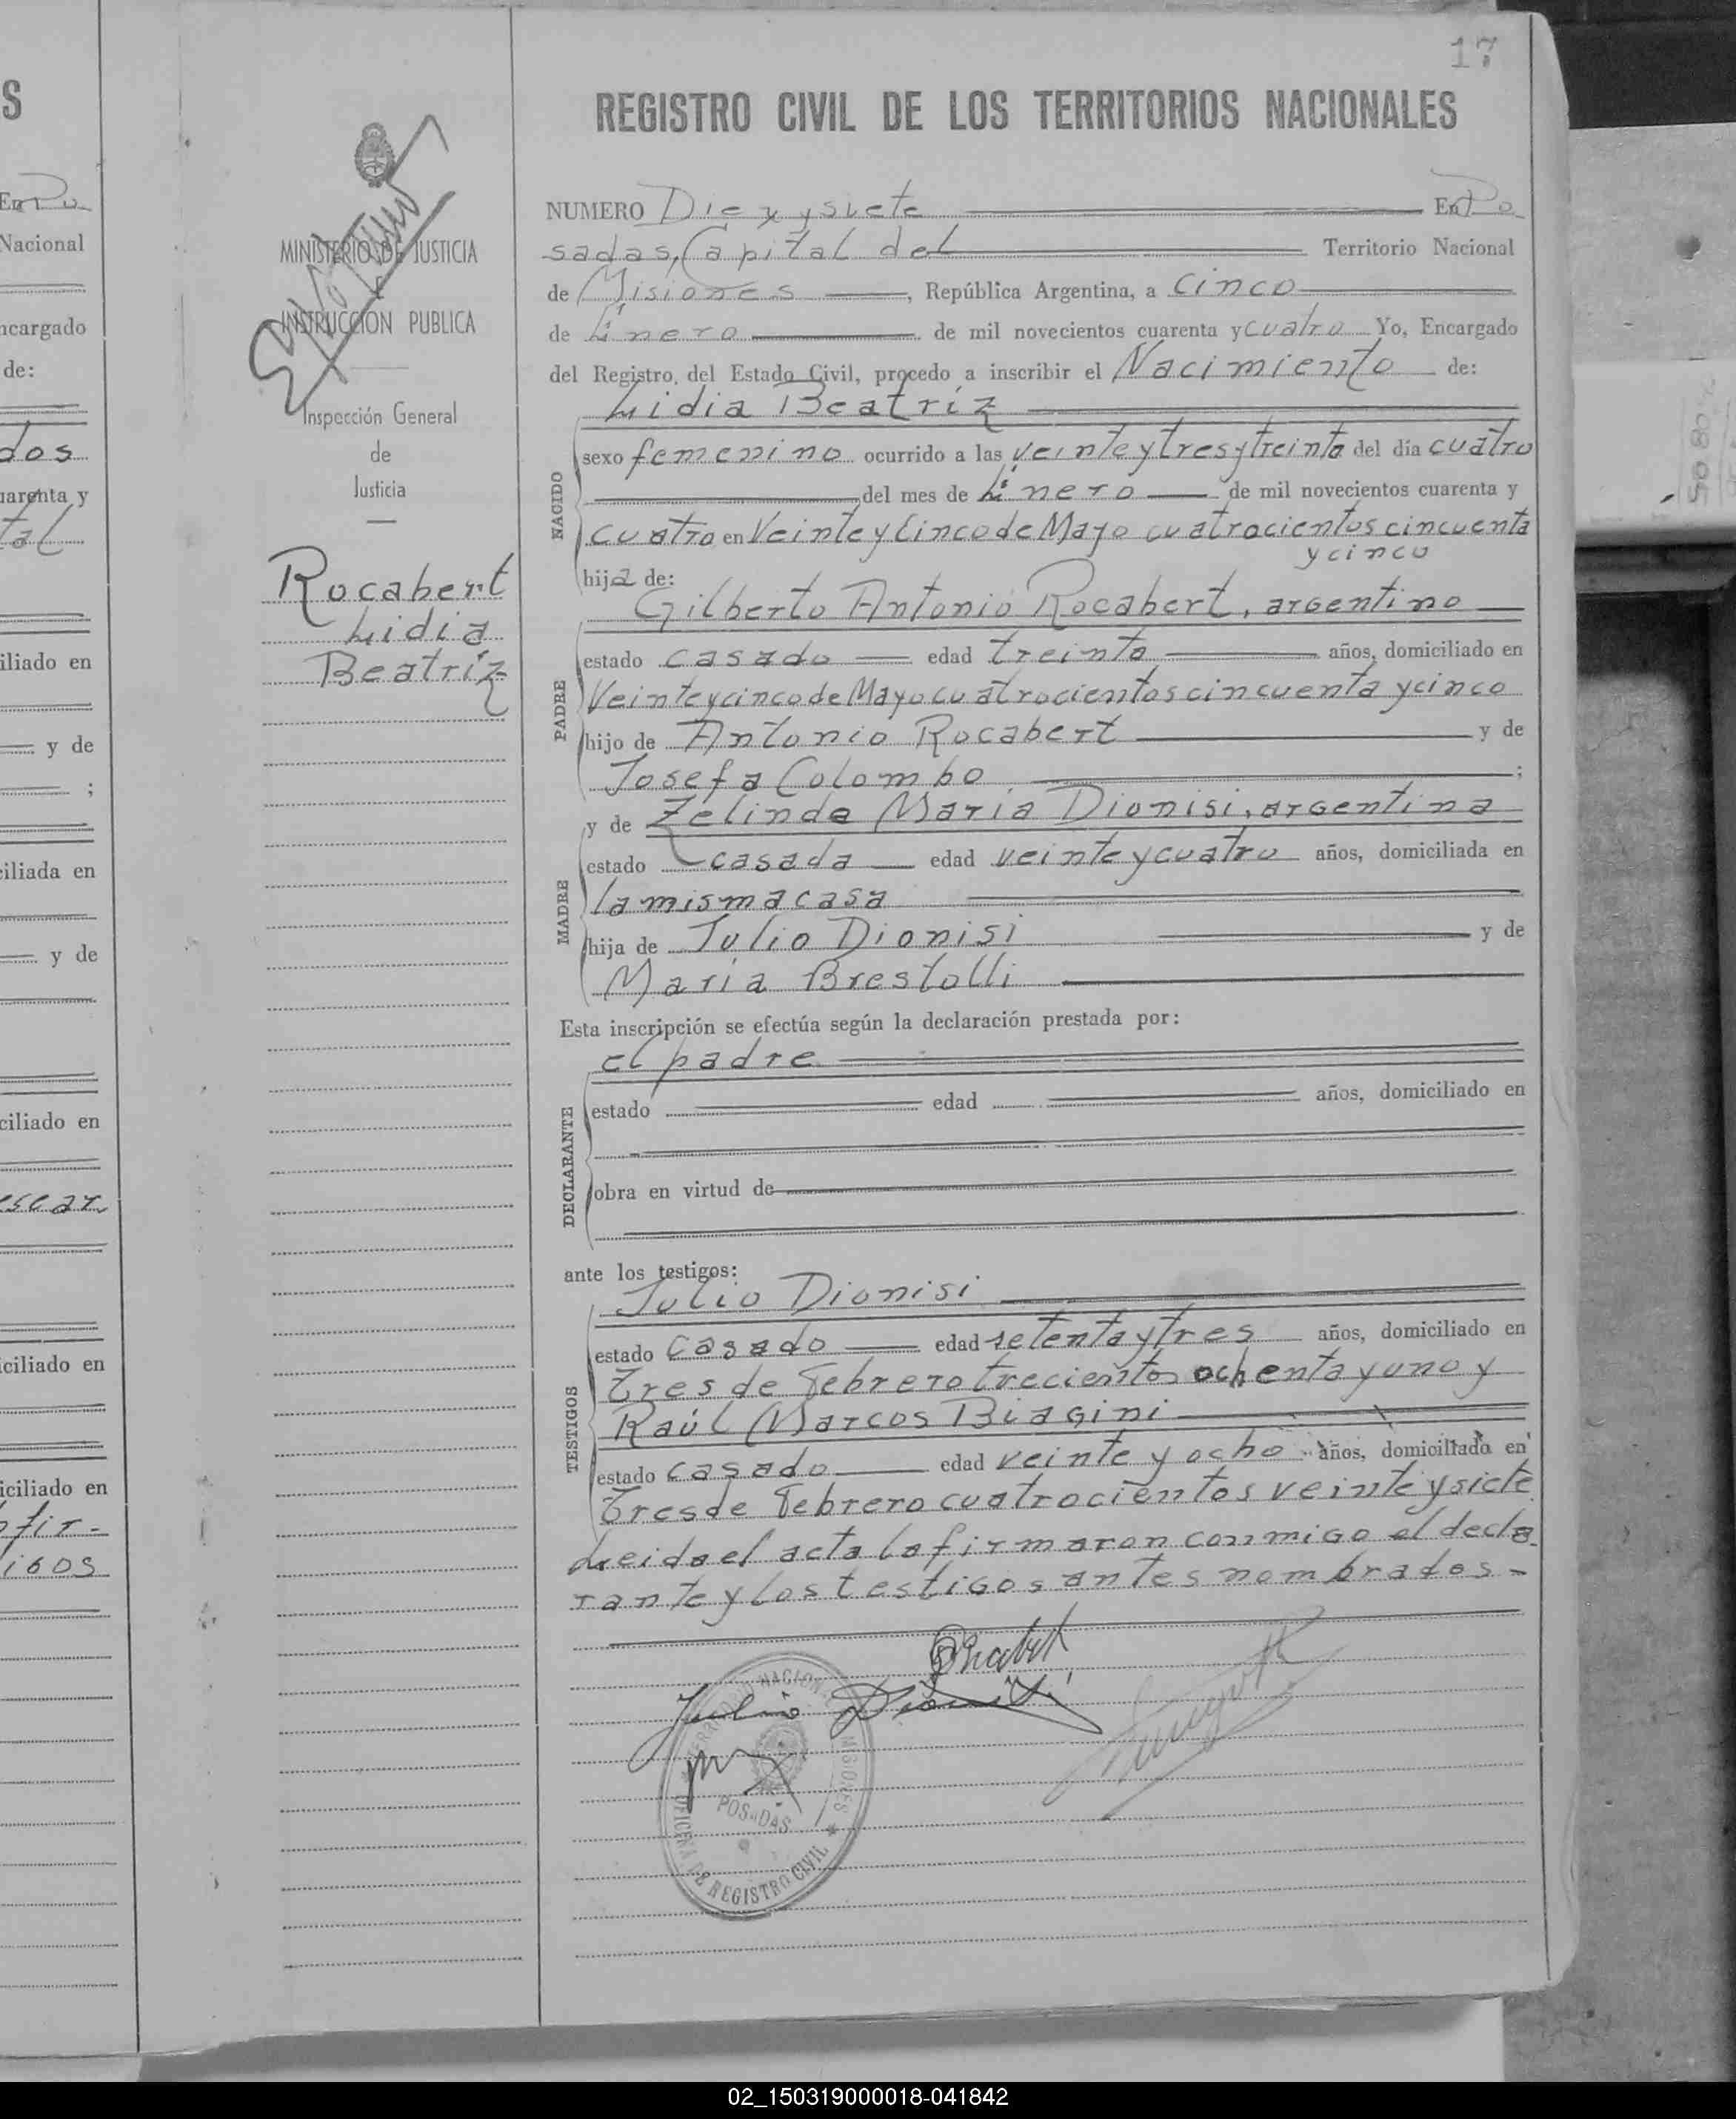 S
En Po
Nacional
ncargado
de:
dos
uarenta y
tal
iliado en
y de
;
ciliada en
y de
ciliado en
escar
iciliado en
iciliado en
ofir-
igos
MINISTERIO DE JUSTICIA
E
INSTRUCCIÓN PUBLICA
Inspección General
de
Justicia
Rocabert
Lidia
Beatríz
17
REGISTRO CIVIL DE LOS TERRITORIOS NACIONALES
NUMERO Diez y siete En Po
sadas, Capital del Territorio Nacional
de Misiones, República Argentina, a cinco
de Enero de mil novecientos cuarenta y cuatro Yo, Encargado
del Registro del Estado Civil, procedo a inscribir el Nacimiento de:
Lidia Beatríz
NACIDO
sexo femenino ocurrido a las veinte y tres y treinta del día cuatro
del mes de Enero de mil novecientos cuarenta y
cuatro en Veinte y Cinco de Mayo cuatrocientos cincuenta
y cinco
hija de:
Gilberto Antonio Rocabert, argentino
PADRE
estado casado edad treinta años, domiciliado en
Veinte y cinco de Mayo cuatrocientos cincuenta y cinco
hijo de Antonio Rocabert y de
Josefa Colombo ;
y de Zelinda María Dionisi, argentina
MADRE
estado casada edad veinte y cuatro años, domiciliada en
la misma casa
hija de Julio Dionisi y de
María Brestolli
Esta inscripción se efectúa según la declaración prestada por:
el padre
DECLARANTE
estado edad años, domiciliado en
obra en virtud de
ante los testigos:
Julio Dionisi
TESTIGOS
estado casado edad setenta y tres años, domiciliado en
Tres de Febrero trecientos ochenta y uno y
Raúl Marcos Biagini
estado casado edad veinte y ocho años, domiciliado en
Tres de Febrero cuatrocientos veinte y siete
Leida el acta la firmaron conmigo el decla
rante y los testigos antes nombrados-
Julio Dionisi
TERRITORIO NACIONAL MISIONES
POSADAS
OFICINA DE REGISTRO CIVIL
02_150319000018-041842